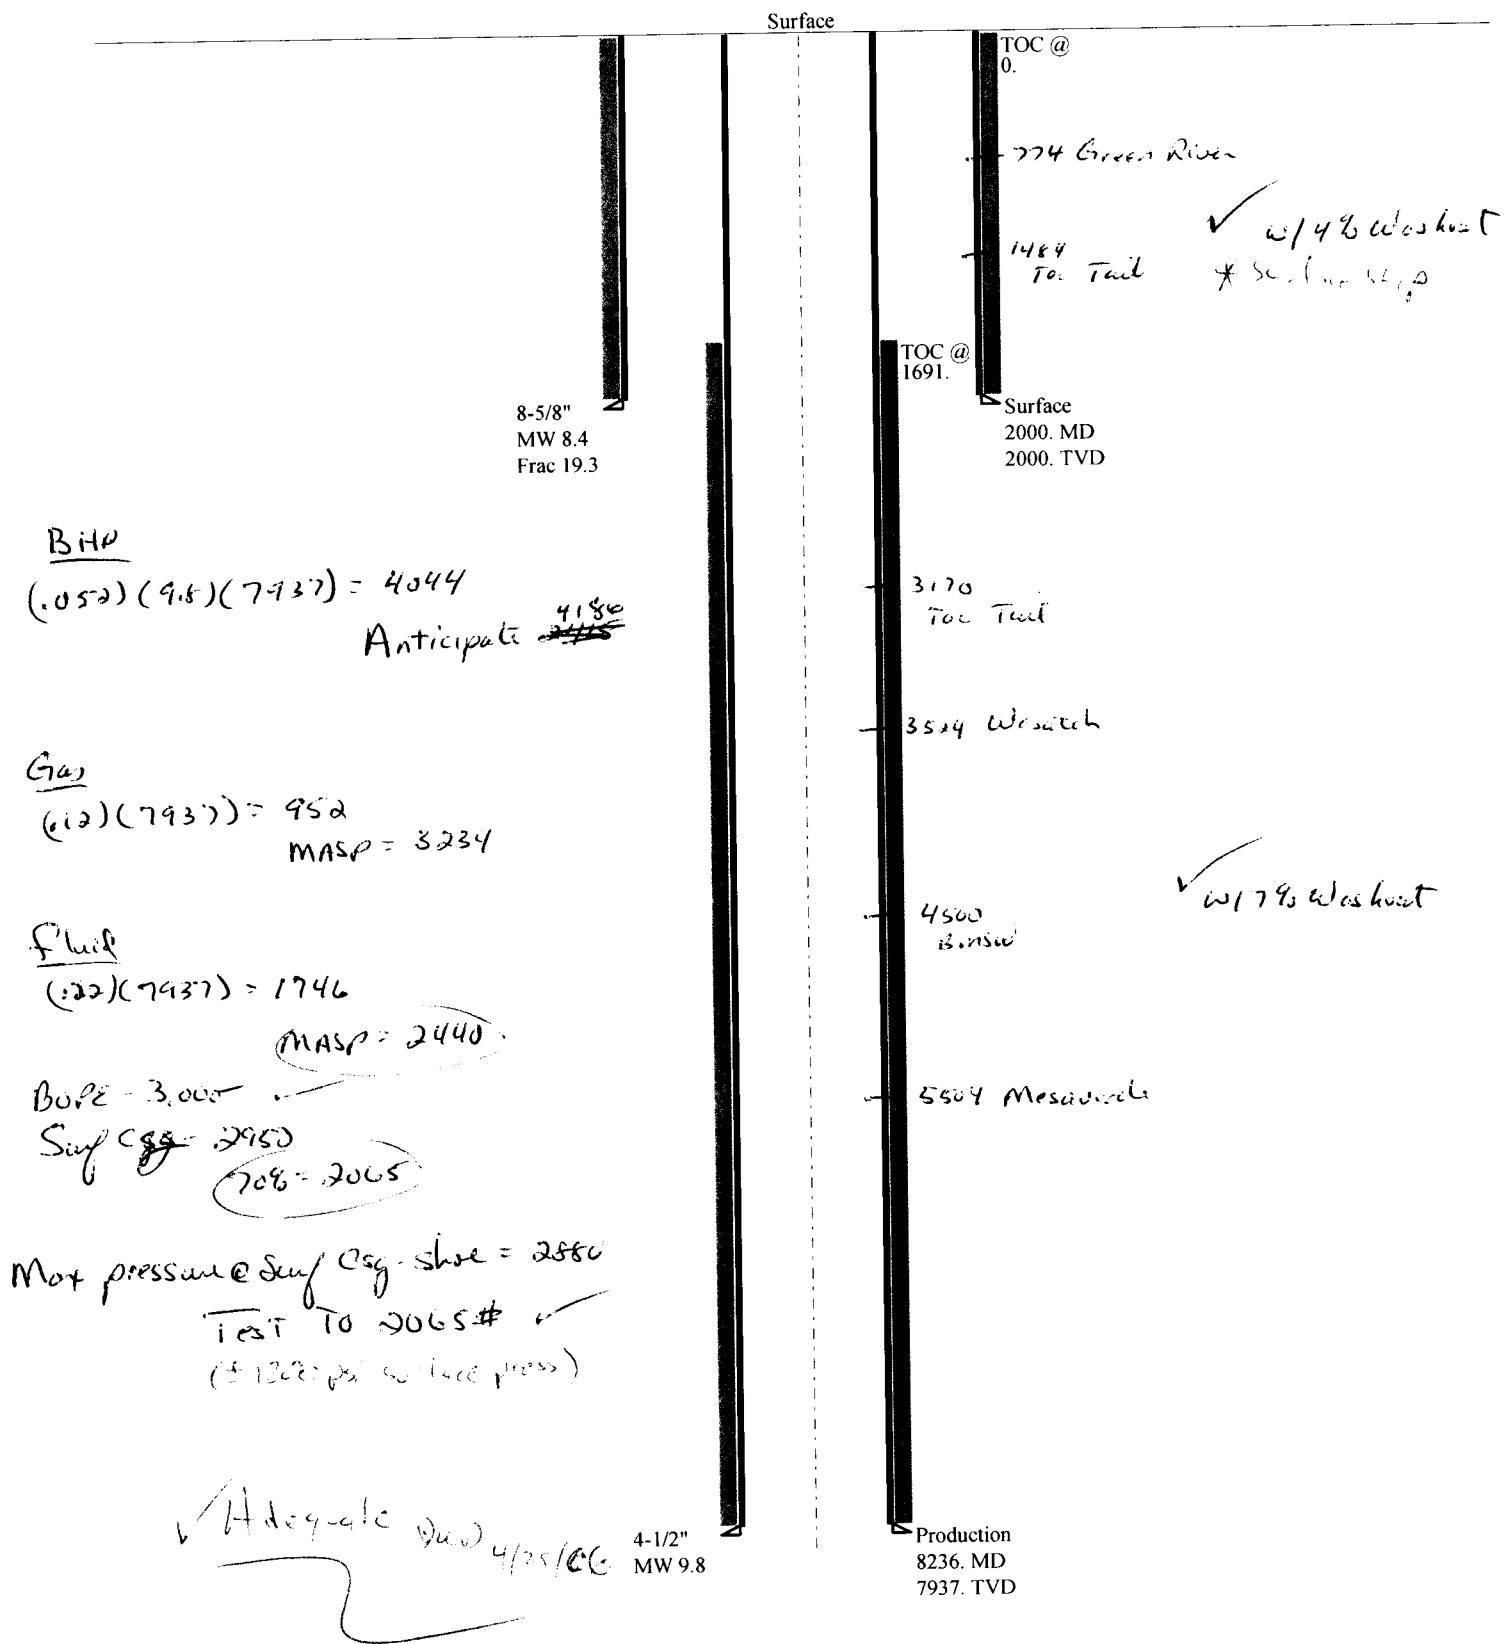 Surface
TOC @
0.
774 Green River
✓ w/ 4% Washout
1484
Toc Tail
*
TOC @
1691.
8-5/8"
MW 8.4
Frac 19.3
Surface
2000. MD
2000. TVD
BHP
(.052)(9.8)(7937) = 4044
Anticipate 4186
3170
Toc Tail
3524 Wasatch
Gas
(.12)(7937) = 952
MASP = 3234
✓ w/ 7% Washout
4500
BMSW
Fluid
(.22)(7937) = 1746
MASP = 2440
BOPE - 3,000 ✓
5504 Mesaverde
Surf Csg - 2950
70% = 2065
Max pressure @ Surf Csg shoe = 2880
Test To 2065# ✓
psi surface press)
✓ Adequate
4-1/2"
MW 9.8
Production
8236. MD
7937. TVD